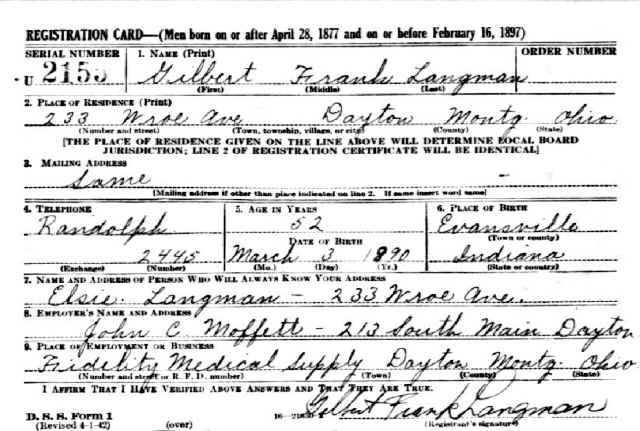 REGISTRATION CARD—(Men born on or after April 28, 1877 and on or before February 16, 1897)
SERIAL NUMBER 1. NAME (Print) ORDER NUMBER
U 2155 Gilbert Frank Langman
(First) (Middle) (Last)
2. PLACE OF RESIDENCE (Print)
233 Wroe Ave Dayton Montg. Ohio
(Number and street) (Town, township, village, or city) (County) (State)
[THE PLACE OF RESIDENCE GIVEN ON THE LINE ABOVE WILL DETERMINE LOCAL BOARD
JURISDICTION; LINE 2 OF REGISTRATION CERTIFICATE WILL BE IDENTICAL]
3. MAILING ADDRESS
Same
[Mailing address if other than place indicated on line 2. If same insert word same]
4. TELEPHONE 5. AGE IN YEARS 6. PLACE OF BIRTH
Randolph 52 Evansville
(Town or county)
DATE OF BIRTH
2445 March 3 1890 Indiana
(Exchange) (Number) (Mo.) (Day) (Yr.) (State or country)
7. NAME AND ADDRESS OF PERSON WHO WILL ALWAYS KNOW YOUR ADDRESS
Elsie Langman - 233 Wroe Ave.
8. EMPLOYER'S NAME AND ADDRESS
John C. Moffett - 213 South Main Dayton
9. PLACE OF EMPLOYMENT OR BUSINESS
Fidelity Medical Supply Dayton Montg Ohio
(Number and street or R. F. D. number) (Town) (County) (State)
I AFFIRM THAT I HAVE VERIFIED ABOVE ANSWERS AND THAT THEY ARE TRUE.
Gilbert Frank Langman
D. S. S. Form 1
(Revised 4-1-42) (over) (Registrant's signature)